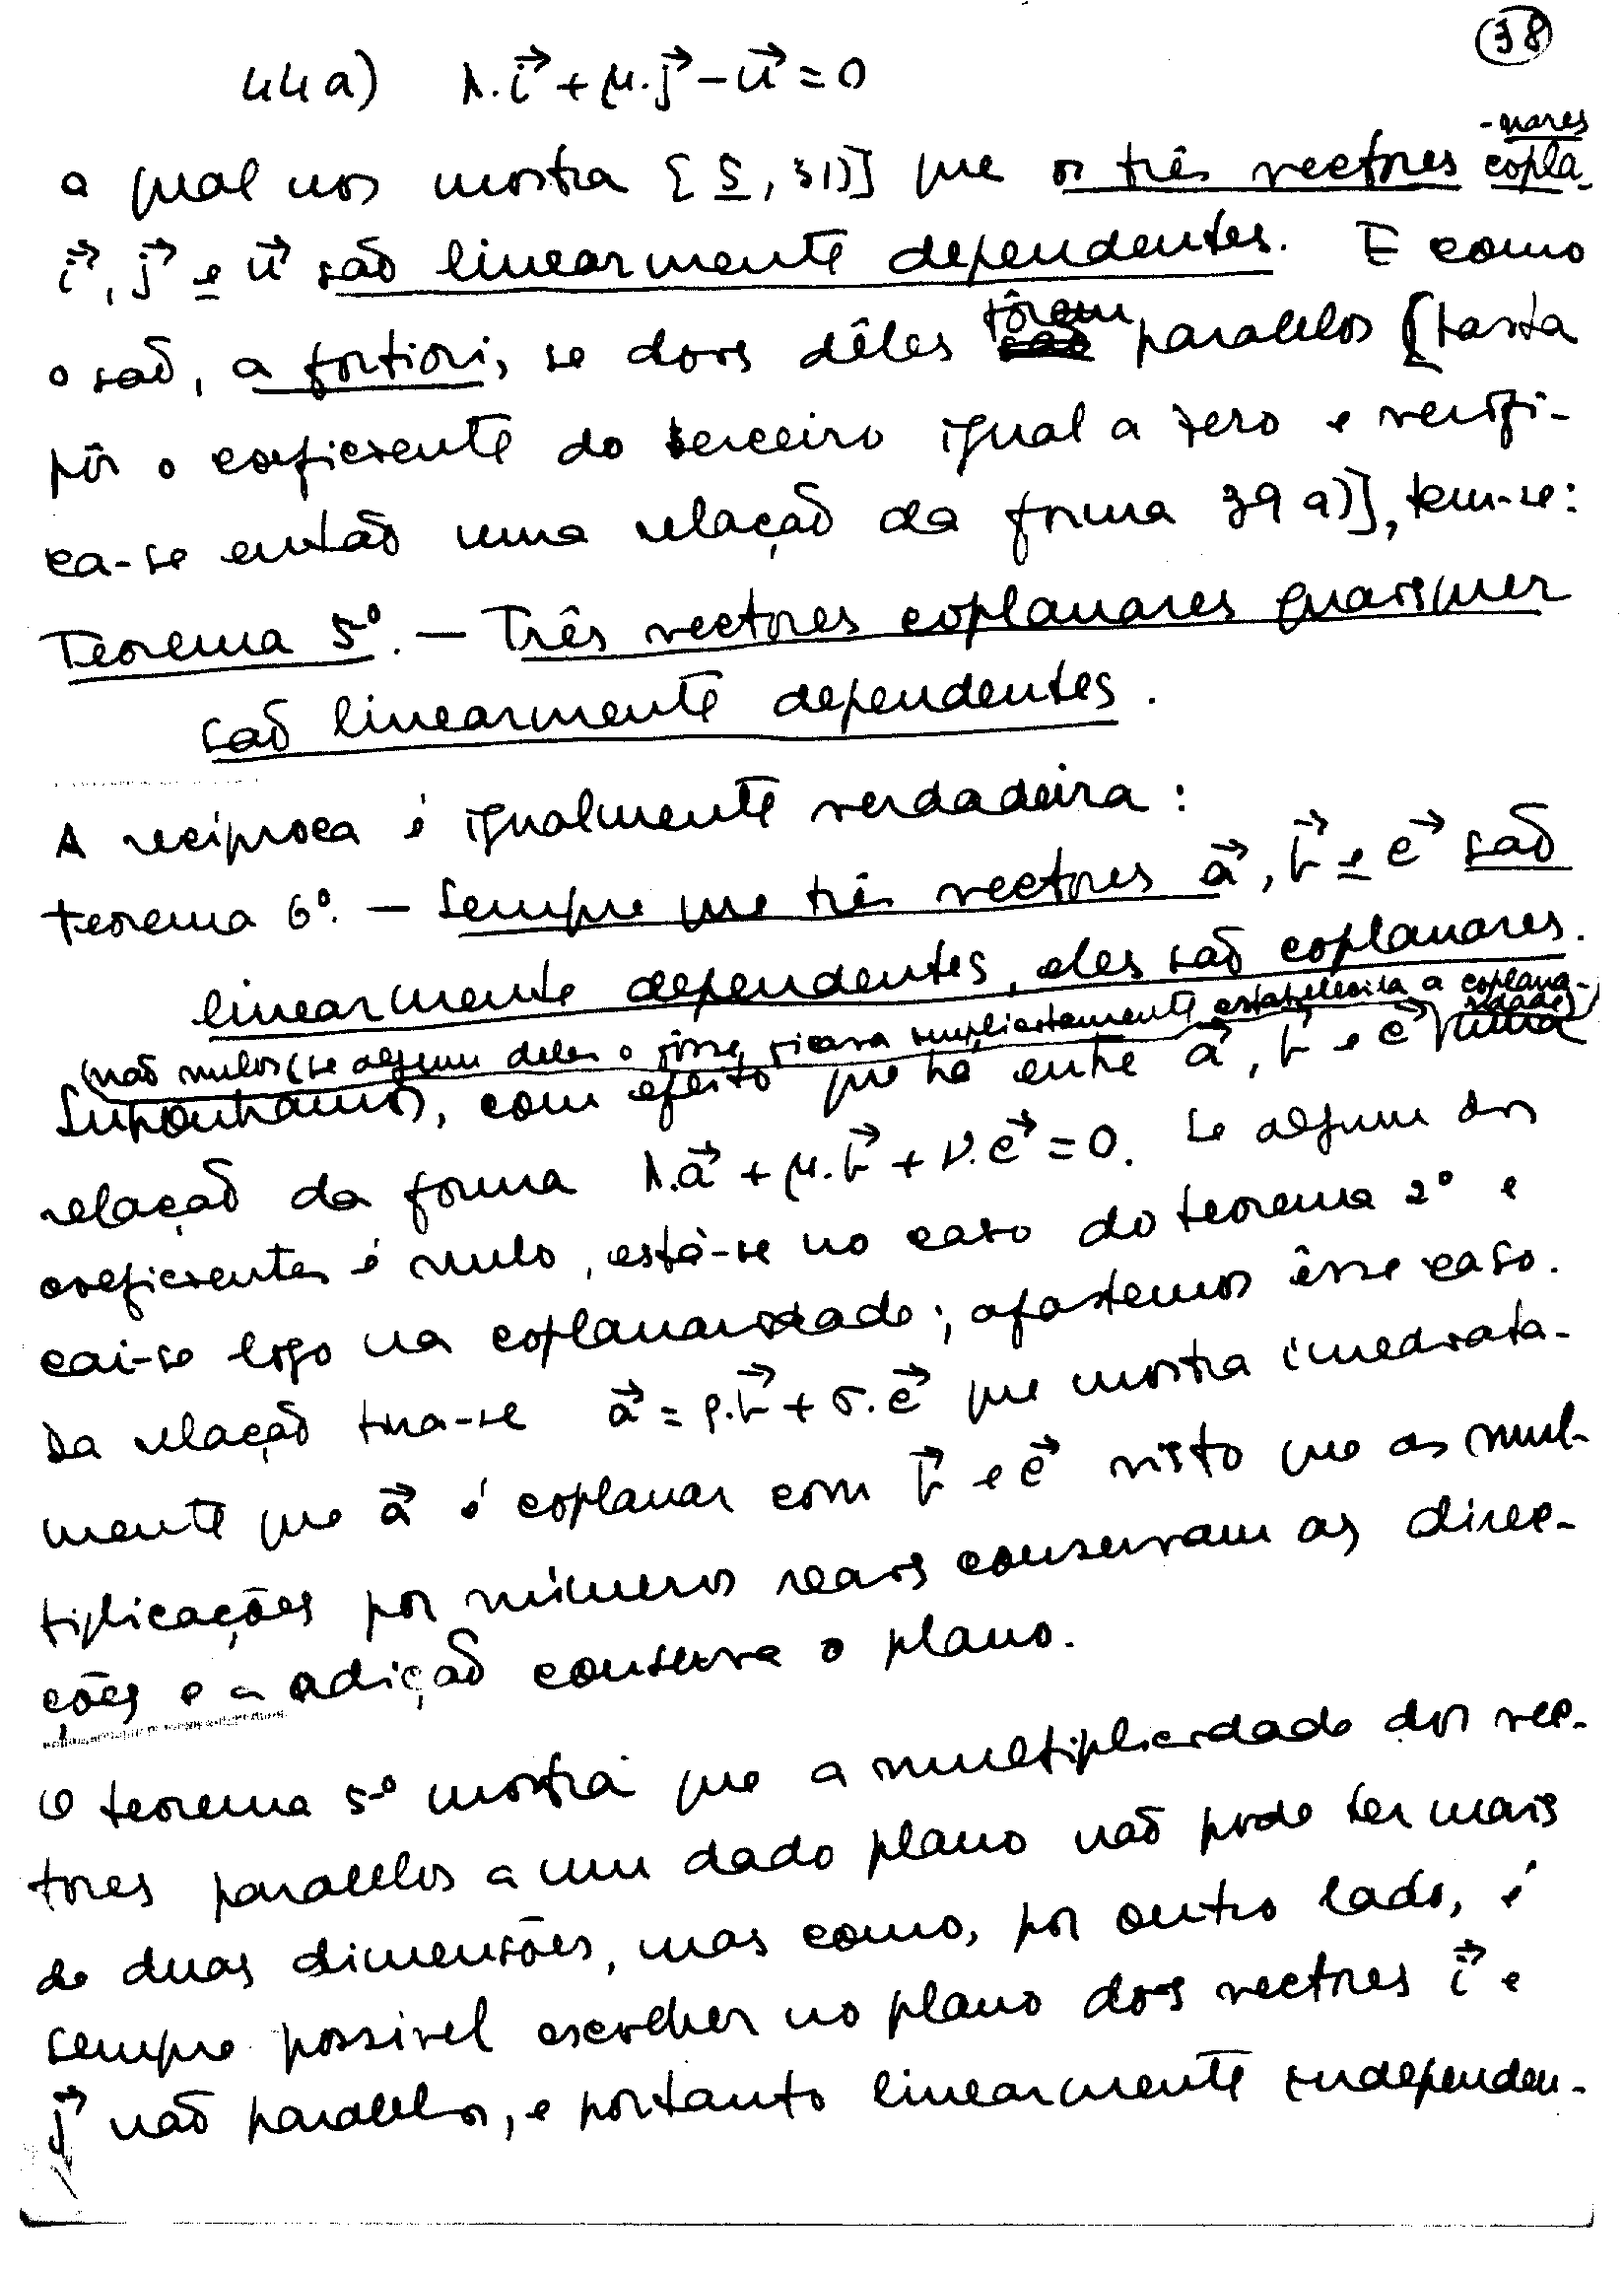 38
44a) λ.i⃗ + μ.j⃗ − u⃗ = 0
a qual nos mostra [§, 31)] que os três vectores copla-
-nares
i⃗, j⃗ e u⃗ são linearmente dependentes. E como
o são, a fortiori, se dois dêles fôrem paralelos [basta
pôr o coeficiente do terceiro igual a zero e verifi-
ca-se então uma relação da forma 39 a)], tem-se:
Teorema 5º. — Três vectores coplanares quaisquer
são linearmente dependentes.
A recíproca é igualmente verdadeira:
Teorema 6º. — Sempre que três vectores a⃗, b⃗ e c⃗ são
linearmente dependentes, eles são coplanares.
(não nulos (se algum deles o fôsse, ficava implicitamente estabelecida a coplana-
ridade)
Suponhamos, com efeito que há entre a⃗, b⃗ e c⃗ uma
relação da forma λ.a⃗ + μ.b⃗ + ν.c⃗ = 0. Se algum dos
coeficientes é nulo, está-se no caso do teorema 2º e
cai-se logo na coplanaridade; afastemos êsse caso.
Da relação tira-se a⃗ = ρ.b⃗ + σ.c⃗ que mostra imediata-
mente que a⃗ é coplanar com b⃗ e c⃗ visto que as mul-
tiplicações por números reais conservam as direc-
ções e a adição conserva o plano.
O teorema 5º mostra que a multiplicidade dos vec-
tores paralelos a um dado plano não pode ter mais
de duas dimensões, mas como, por outro lado, é
sempre possivel escolher no plano dois vectores i⃗ e
j⃗ não paralelos, e portanto linearmente independen-